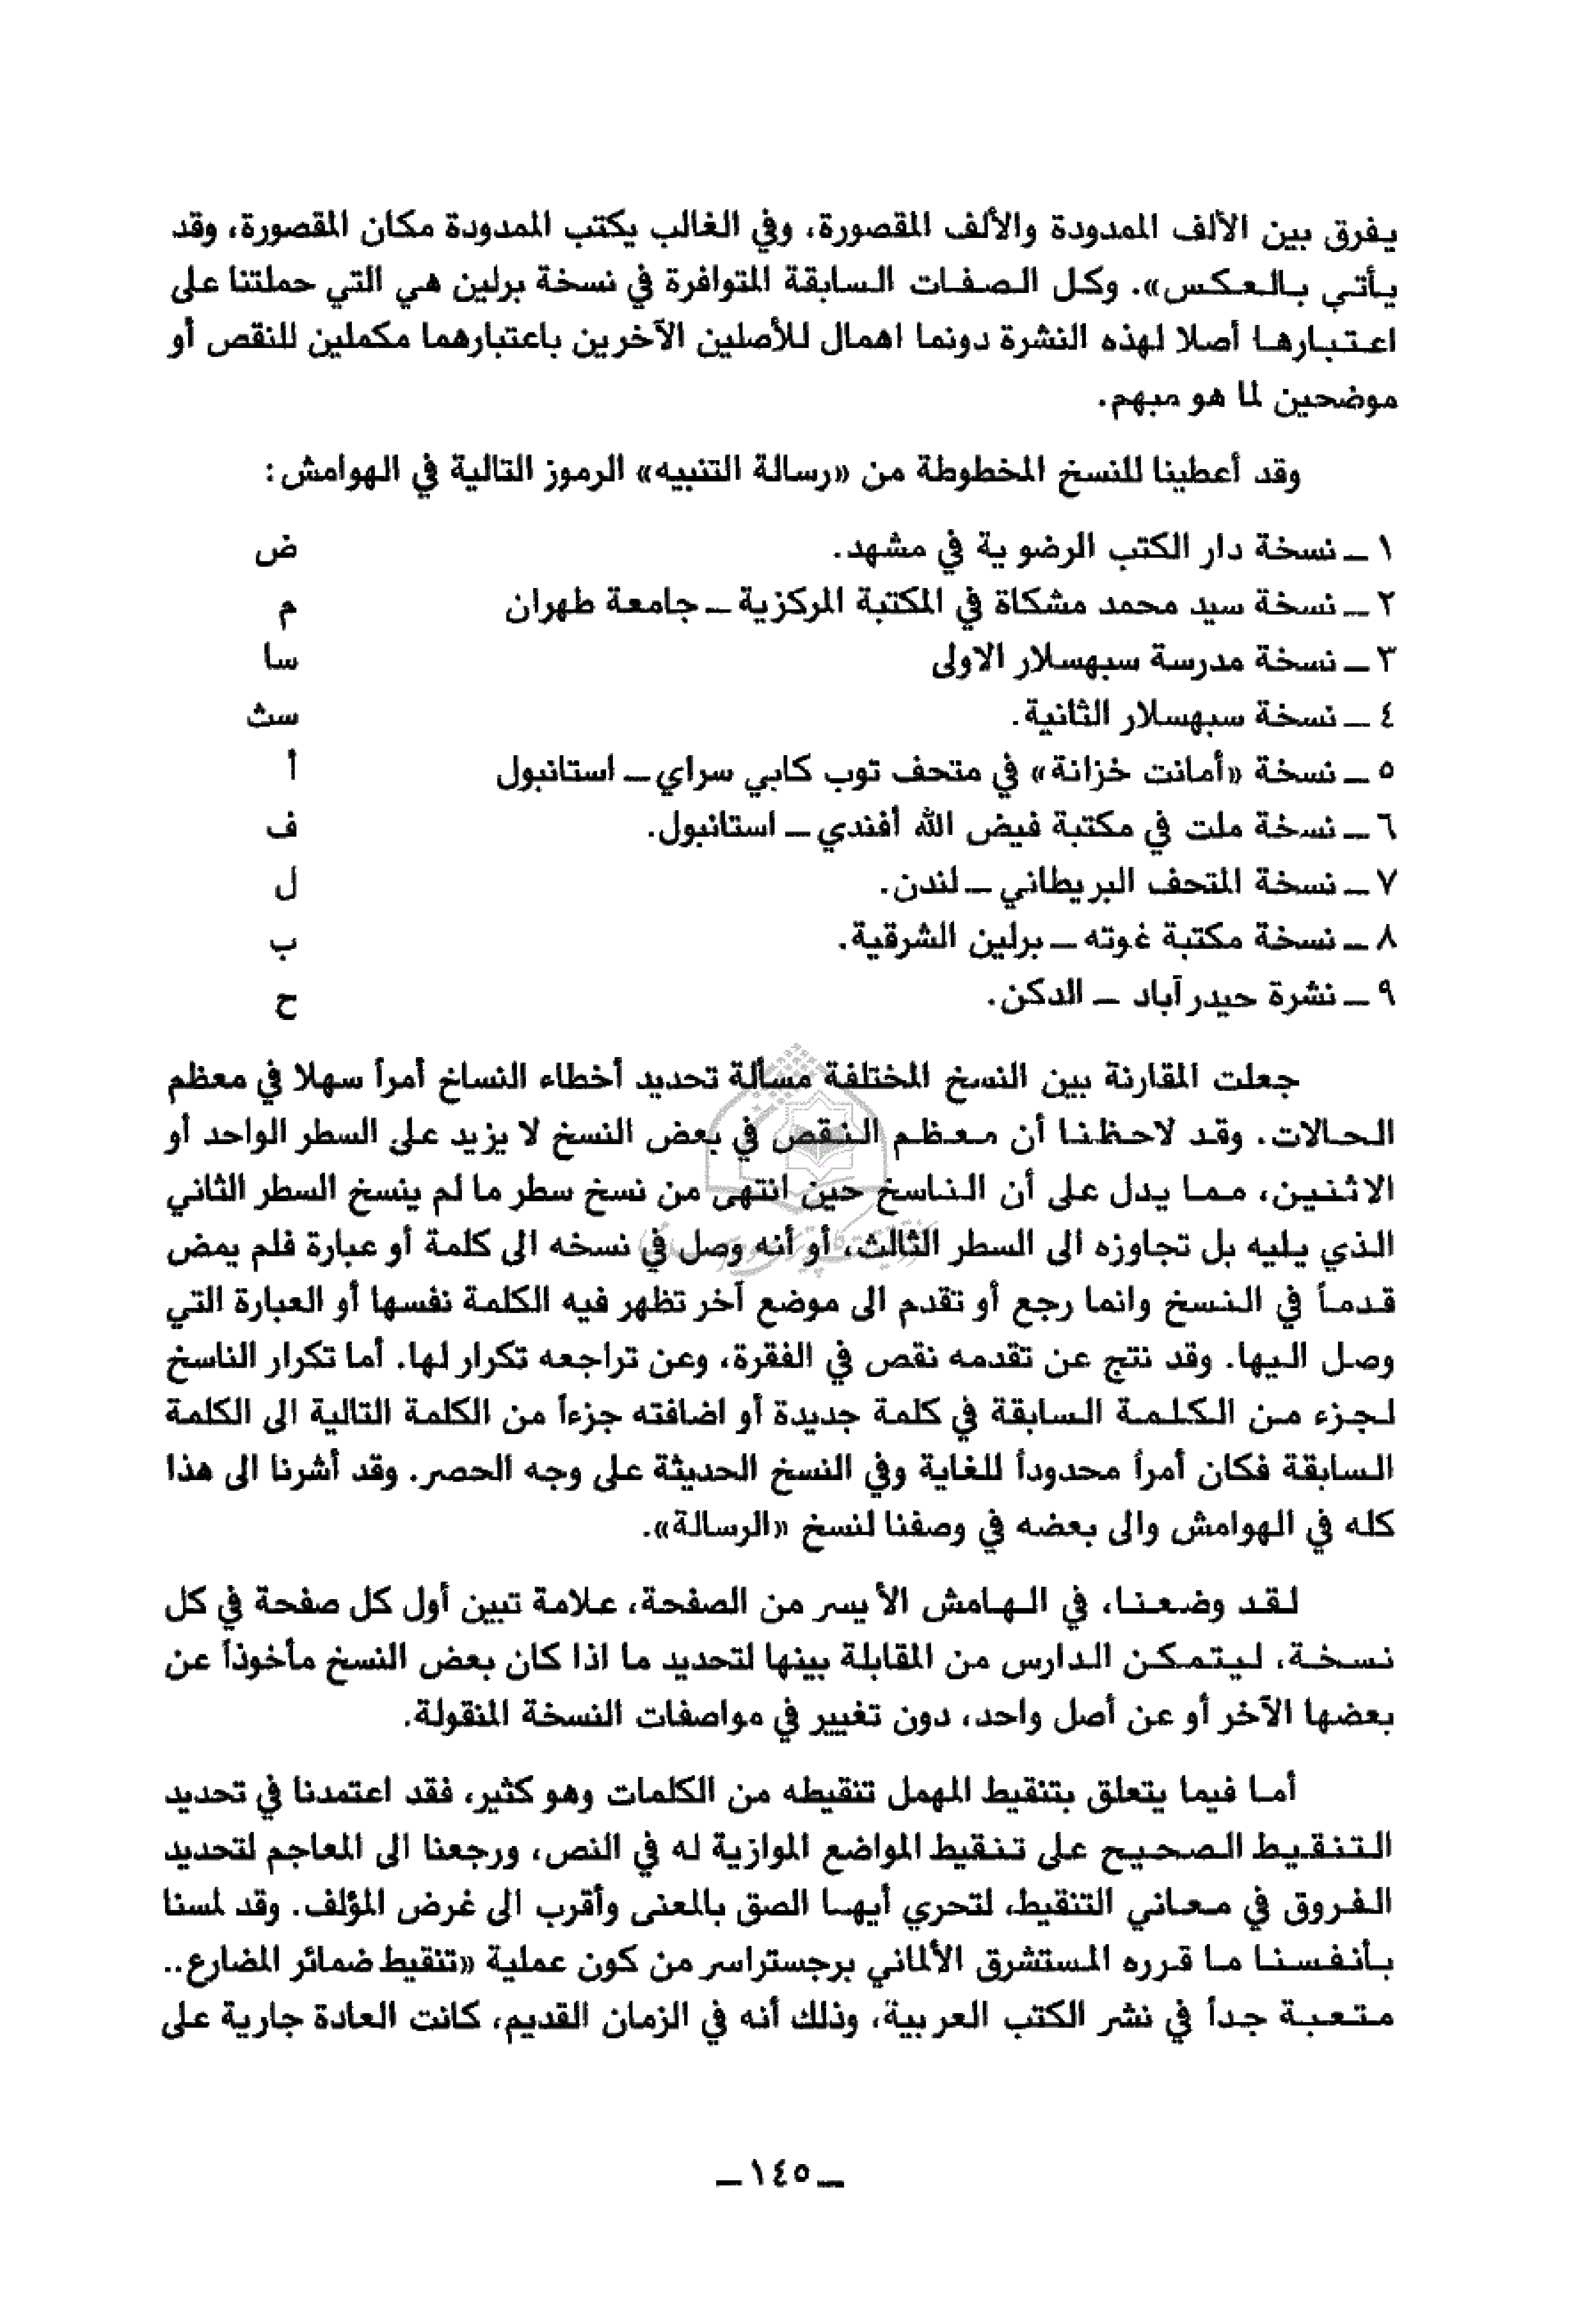 يفرق بين الألف الممدودة والألف المقصورة، وفي الغالب يكتب الممدودة مكان المقصورة، وقد
يأتي بالعكس». وكل الصفات السابقة المتوافرة في نسخة برلين هي التي حملتنا على
اعتبارها أصلا لهذه النشرة دونما اهمال للأصلين الآخرين باعتبارهما مكملين للنقص أو
موضحين لما هو مبهم.
وقد أعطينا للنسخ المخطوطة من «رسالة التنبيه» الرموز التالية في الهوامش:
١ ــ نسخة دار الكتب الرضوية في مشهد. ض
٢ ــ نسخة سيد محمد مشكاة في المكتبة المركزية ــ جامعة طهران م
٣ ــ نسخة مدرسة سبهسلار الاولى سا
٤ ــ نسخة سبهسلار الثانية. سث
٥ ــ نسخة «أمانت خزانة» في متحف توب كابي سراي ــ استانبول أ
٦ ــ نسخة ملت في مكتبة فيض الله أفندي ــ استانبول. ف
٧ ــ نسخة المتحف البريطاني ــ لندن. ل
٨ ــ نسخة مكتبة غوته ــ برلين الشرقية. ب
٩ ــ نشرة حيدرآباد ــ الدكن. ح
جعلت المقارنة بين النسخ المختلفة مسألة تحديد أخطاء النساخ أمراً سهلا في معظم
الحالات. وقد لاحظنا أن معظم النقص في بعض النسخ لا يزيد على السطر الواحد أو
الاثنين، مما يدل على أن الناسخ حين انتهى من نسخ سطر ما لم ينسخ السطر الثاني
الذي يليه بل تجاوزه الى السطر الثالث، أو أنه وصل في نسخه الى كلمة أو عبارة فلم يمض
قدماً في النسخ وانما رجع أو تقدم الى موضع آخر تظهر فيه الكلمة نفسها أو العبارة التي
وصل اليها. وقد نتج عن تقدمه نقص في الفقرة، وعن تراجعه تكرار لها. أما تكرار الناسخ
لجزء من الكلمة السابقة في كلمة جديدة أو اضافته جزءاً من الكلمة التالية الى الكلمة
السابقة فكان أمراً محدوداً للغاية وفي النسخ الحديثة على وجه الحصر. وقد أشرنا الى هذا
كله في الهوامش والى بعضه في وصفنا لنسخ «الرسالة».
لقد وضعنا، في الهامش الأيسر من الصفحة، علامة تبين أول كل صفحة في كل
نسخة، ليتمكن الدارس من المقابلة بينها لتحديد ما اذا كان بعض النسخ مأخوذاً عن
بعضها الآخر أو عن أصل واحد، دون تغيير في مواصفات النسخة المنقولة.
أما فيما يتعلق بتنقيط المهمل تنقيطه من الكلمات وهو كثير، فقد اعتمدنا في تحديد
التنقيط الصحيح على تنقيط المواضع الموازية له في النص، ورجعنا الى المعاجم لتحديد
الفروق في معاني التنقيط، لتحري أيها الصق بالمعنى وأقرب الى غرض المؤلف. وقد لمسنا
بأنفسنا ما قرره المستشرق الألماني برجستراسر من كون عملية «تنقيط ضمائر المضارع..
متعبة جداً في نشر الكتب العربية، وذلك أنه في الزمان القديم، كانت العادة جارية على
ــ ١٤٥ ــ